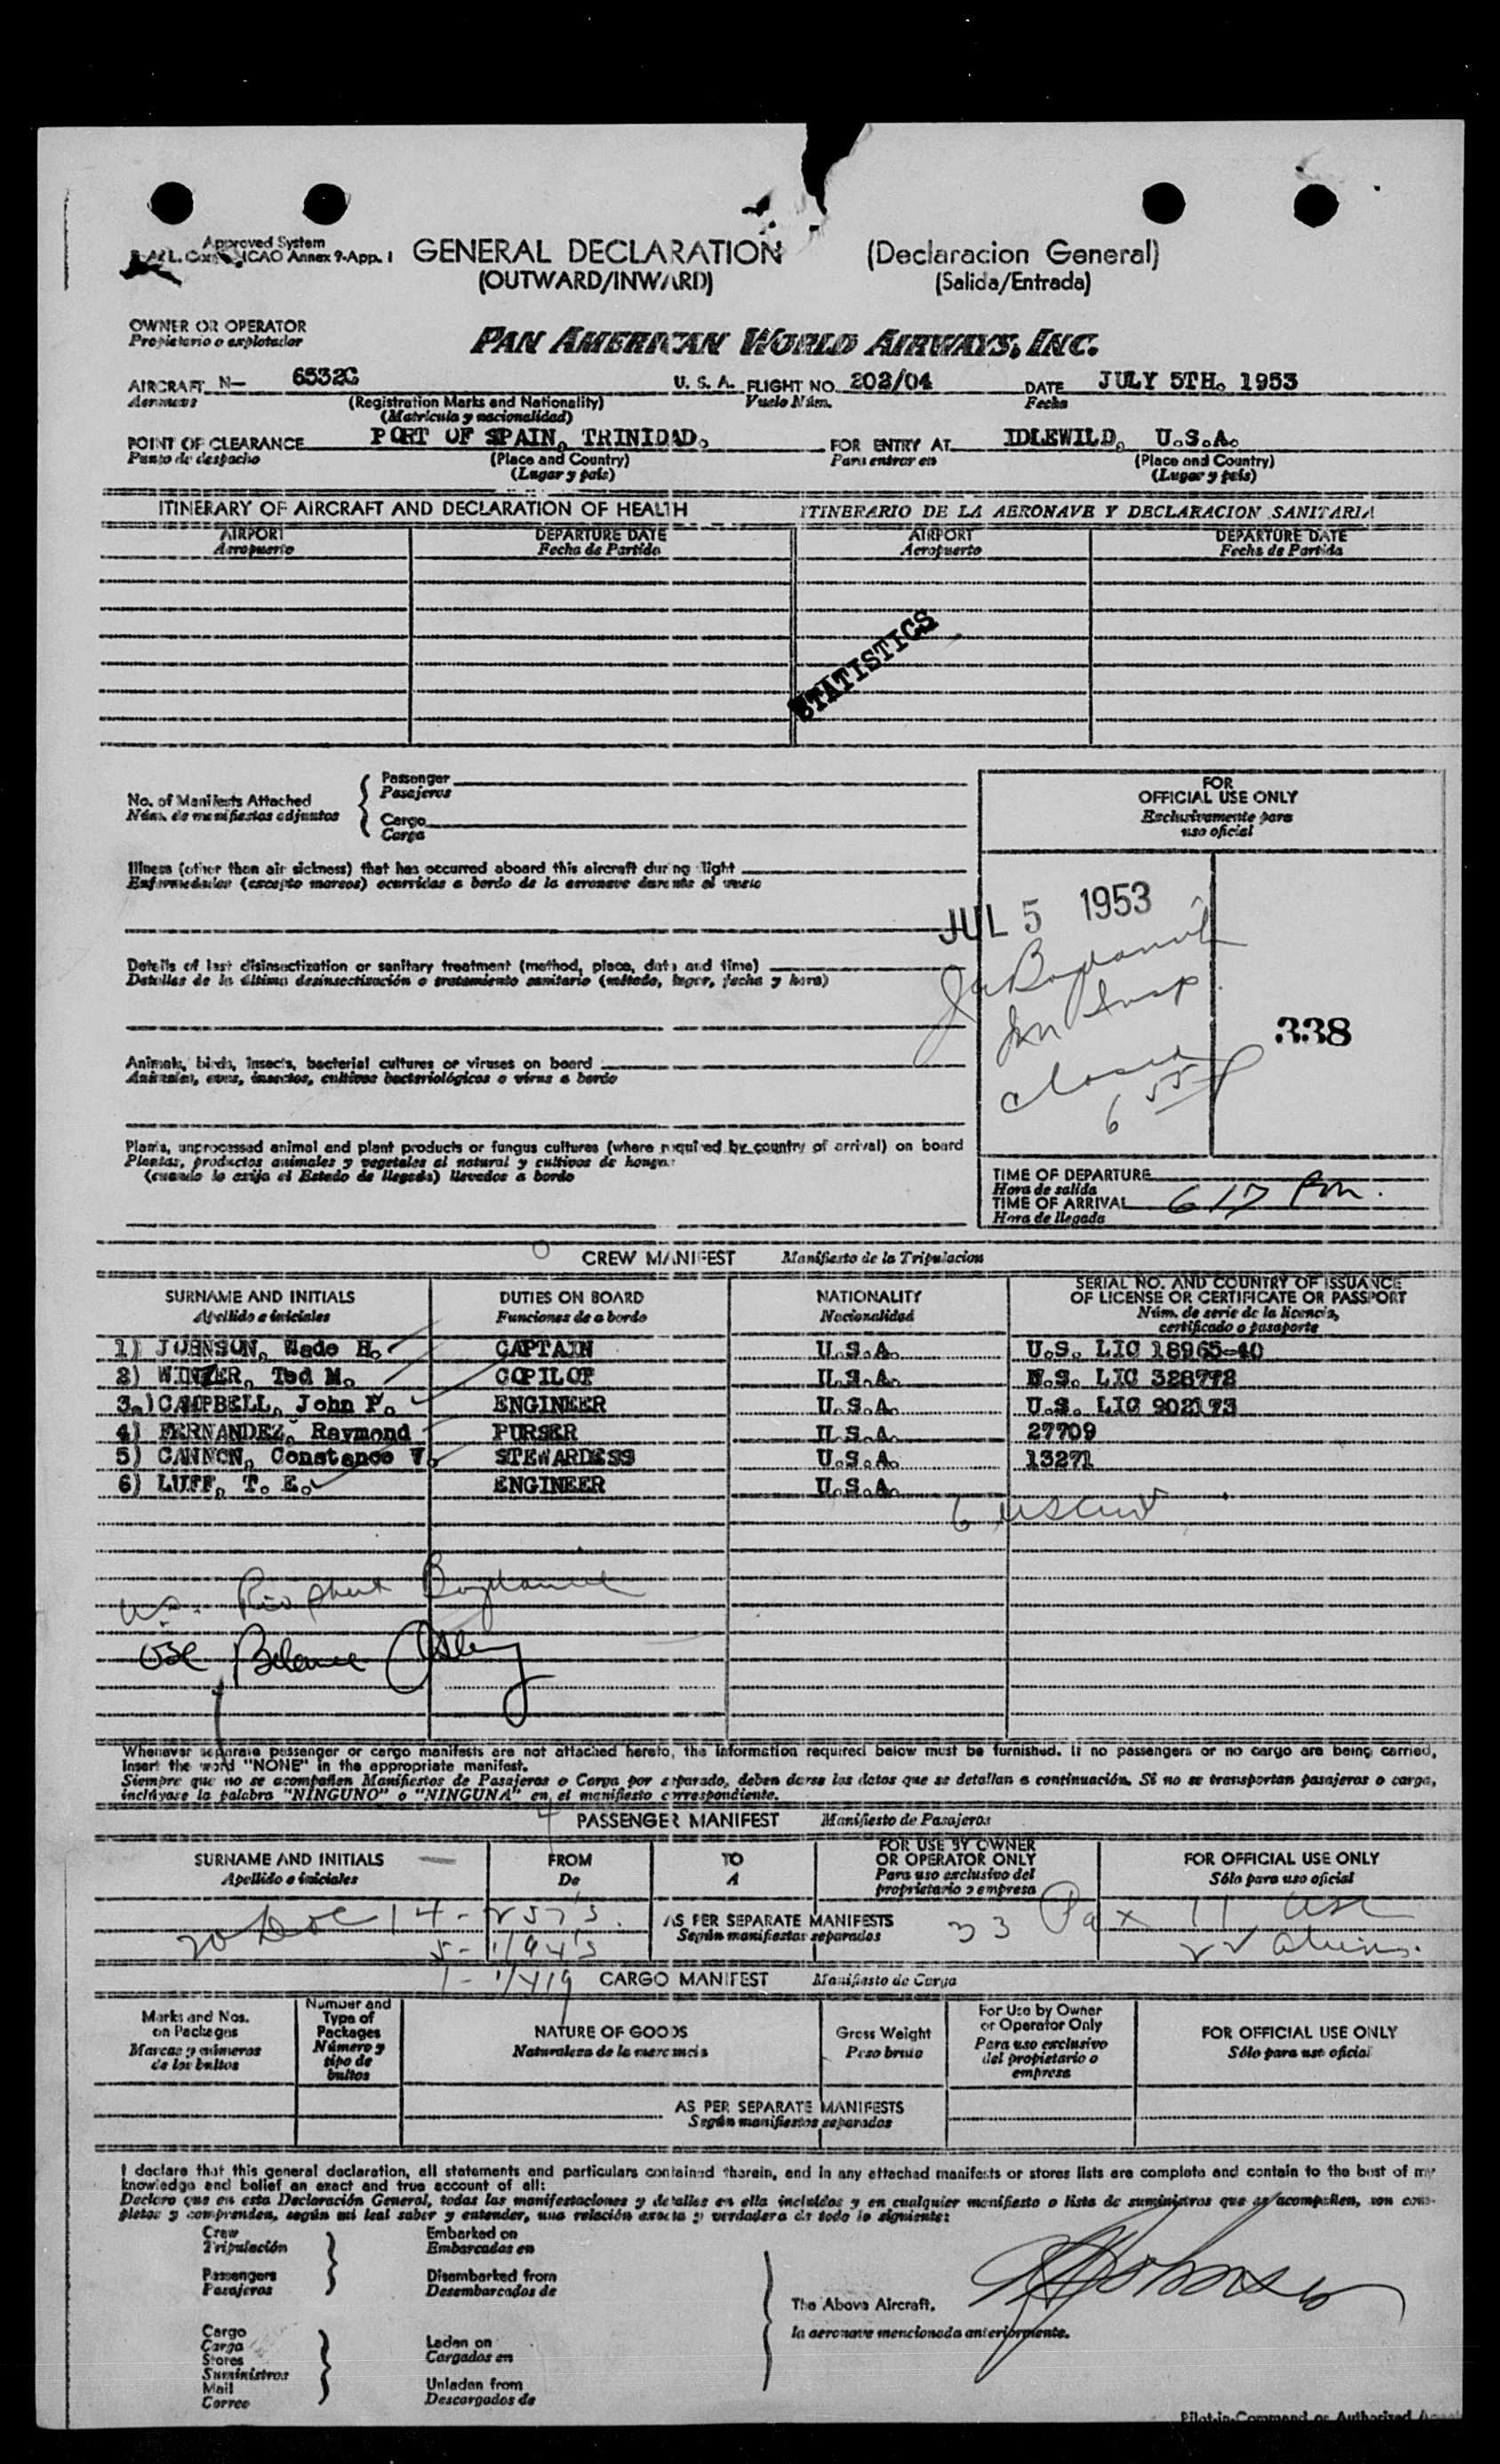 Approved System
ICAO Annex 9-App. 1
GENERAL DECLARATION (Declaracion General)
(OUTWARD/INWARD) (Salida/Entrada)
OWNER OR OPERATOR
Propietario o explotador
PAN AMERICAN WORLD AIRWAYS, INC.
AIRCRAFT N- 6532C U. S. A. FLIGHT NO. 202/04 DATE JULY 5TH. 1953
Aeronave (Registration Marks and Nationality) Vuelo Núm. Fecha
(Matricula y nacionalidad)
POINT OF CLEARANCE PORT OF SPAIN, TRINIDAD. FOR ENTRY AT IDLEWILD, U.S.A.
Punto de despacho (Place and Country) Para entrar en (Place and Country)
(Lugar y país) (Lugar y país)
ITINERARY OF AIRCRAFT AND DECLARATION OF HEALTH ITINERARIO DE LA AERONAVE Y DECLARACION SANITARIA
AIRPORT DEPARTURE DATE AIRPORT DEPARTURE DATE
Aeropuerto Fecha de Partida Aeropuerto Fecha de Partida
STATISTICS
No. of Manifests Attached
Núm. de manifiestos adjuntos
Passenger
Pasajeros
Cargo
Carga
FOR
OFFICIAL USE ONLY
Exclusivamente para
uso oficial
Illness (other than air sickness) that has occurred aboard this aircraft during flight
Enfermedades (excepto mareos) ocurridas a bordo de la aeronave durante el vuelo
JUL 5 1953
Details of last disinsectization or sanitary treatment (method, place, date and time)
Detalles de la última desinsectización o tratamiento sanitario (método, lugar, fecha y hora)
Im Insp
338
closed
6 55 P
Animals, birds, insects, bacterial cultures or viruses on board
Animales, aves, insectos, cultivos bacteriológicos o virus a bordo
Plants, unprocessed animal and plant products or fungus cultures (where required by country of arrival) on board
Plantas, productos animales y vegetales al natural y cultivos de hongos
(cuando lo exija el Estado de llegada) llevados a bordo
TIME OF DEPARTURE
Hora de salida
TIME OF ARRIVAL 6 17 Pm.
Hora de llegada
CREW MANIFEST Manifiesto de la Tripulacion
SURNAME AND INITIALS DUTIES ON BOARD NATIONALITY SERIAL NO. AND COUNTRY OF ISSUANCE OF LICENSE OR CERTIFICATE OR PASSPORT
Apellido e iniciales Funciones de a bordo Nacionalidad Núm. de serie de la licencia, certificado o pasaporte
1) JOHNSON, Wade H. CAPTAIN U.S.A. U.S. LIC 18965-40
2) WINZER, Ted M. COPILOT U.S.A. U.S. LIC 328772
3.) CAMPBELL, John F. ENGINEER U.S.A. U.S. LIC 902173
4) FERNANDEZ, Raymond PURSER U.S.A. 27709
5) CANNON, Constance V. STEWARDESS U.S.A. 13271
6) LUFF, T. E. ENGINEER U.S.A.
6
Whenever separate passenger or cargo manifests are not attached hereto, the information required below must be furnished. If no passengers or no cargo are being carried,
insert the word "NONE" in the appropriate manifest.
Siempre que no se acompañen Manifiestos de Pasajeros o Carga por separado, deben darse los datos que se detallan a continuación. Si no se transportan pasajeros o carga,
inclúyase la palabra "NINGUNO" o "NINGUNA" en el manifiesto correspondiente.
PASSENGER MANIFEST Manifiesto de Pasajeros
SURNAME AND INITIALS FROM TO FOR USE BY OWNER OR OPERATOR ONLY FOR OFFICIAL USE ONLY
Apellido e iniciales De A Para uso exclusivo del propietario o empresa Sólo para uso oficial
AS PER SEPARATE MANIFESTS 33 Pax 11 USC
Según manifiestos separados 22 aliens.
CARGO MANIFEST Manifiesto de Carga
Marks and Nos. on Packages Number and Type of Packages NATURE OF GOODS Gross Weight For Use by Owner or Operator Only FOR OFFICIAL USE ONLY
Marcas y números de los bultos Número y tipo de bultos Naturaleza de la mercancia Peso bruto Para uso exclusivo del propietario o empresa Sólo para uso oficial
AS PER SEPARATE MANIFESTS
Según manifiestos separados
I declare that this general declaration, all statements and particulars contained therein, and in any attached manifests or stores lists are complete and contain to the best of my
knowledge and belief an exact and true account of all:
Declaro que en esta Declaración General, todas las manifestaciones y detalles en ella incluidos y en cualquier manifiesto o lista de suministros que se acompañen, son com-
pletos y comprenden, según mi leal saber y entender, una relación exacta y verdadera de todo lo siguiente:
Crew Embarked on
Tripulación Embarcados en
Passengers Disembarked from
Pasajeros Desembarcados de
The Above Aircraft.
la aeronave mencionada anteriormente.
Cargo
Carga
Stores
Suministros
Mail
Correo
Laden on
Cargados en
Unladen from
Descargados de
Pilot-in-Command or Authorized